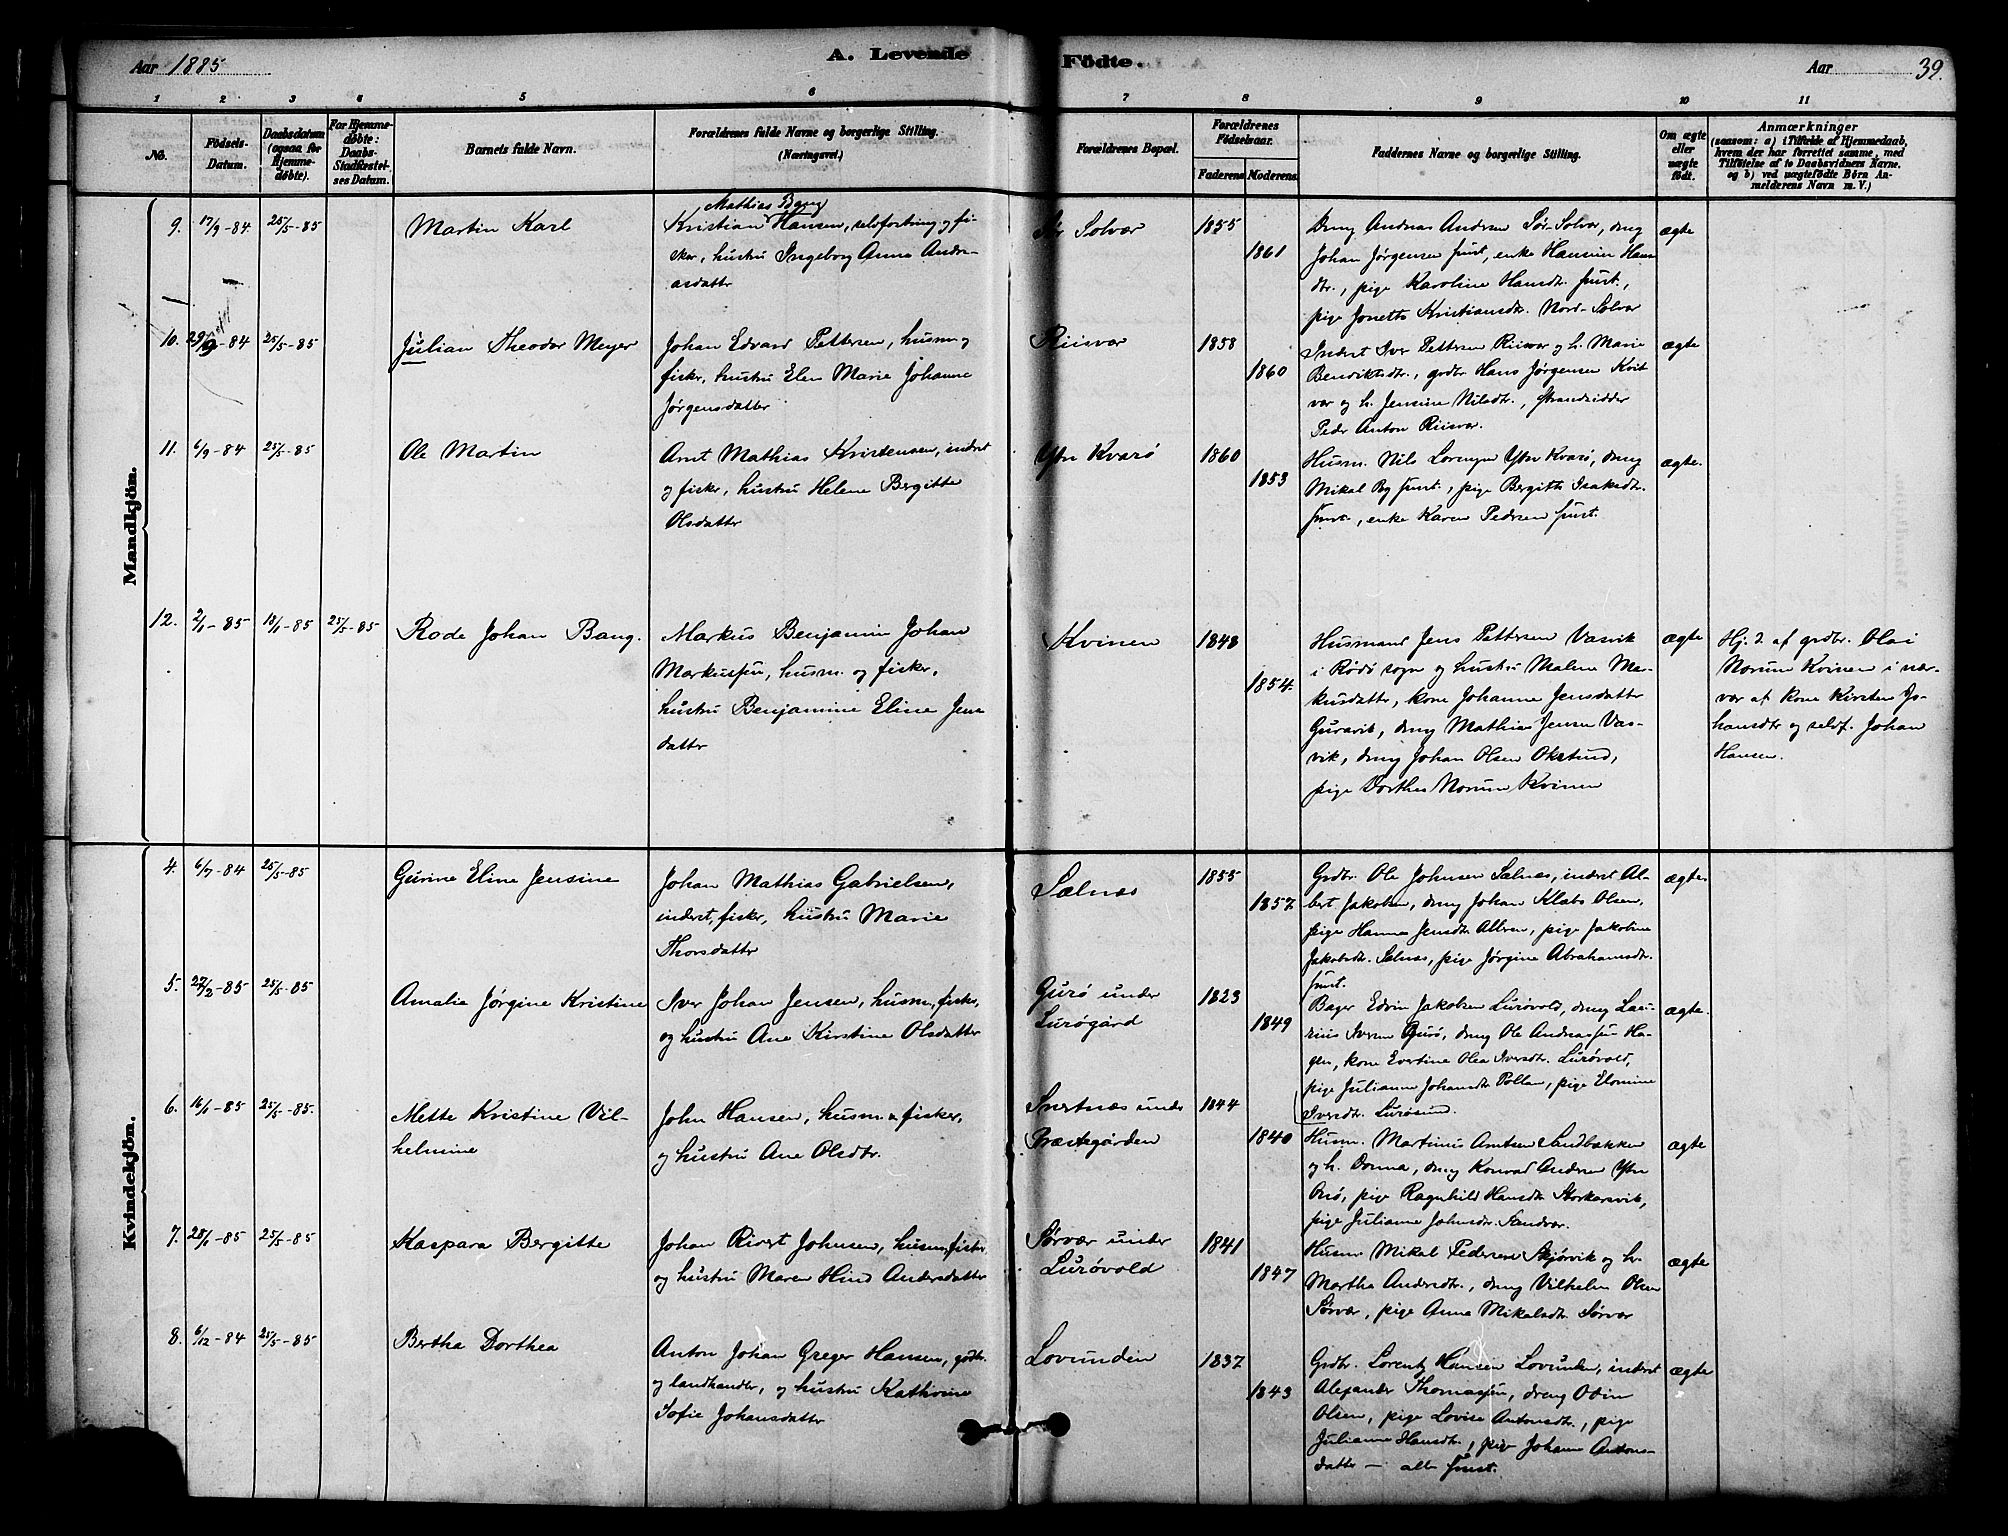 Aar 1885
A. Levende
Födte.
Aar 39.
1 2 3 4 5 6 7 8 9 10 11
No.
Födsels-
Datum.
Daabsdatum
(ogsaa for
Hjemme-
döbte).
For Hjemme-
döbte:
Daabs-
Stadfæstel-
ses Datum.
Barnets fulde Navn.
Forældrenes fulde Navne og borgerlige Stilling.
(Næringsvei.)
Forældrenes Bopæl.
Forældrenes
Födselsaar.
Faderens. Moderens.
Faddernes Navne og borgerlige Stilling.
Om ægte
eller
uægte
födt.
Anmærkninger
(saasom: a) i Tilfælde af Hjemmedaab,
hvem der har forrettet samme, med
Tilföielse af to Daabsvidners Navne.
og b) ved uægtefödte Börn An-
melderens Navn m. V.)
Mandkjön.
9. 17/9-84 25/5-85
Martin Karl
Mathias Bang
Kristian Hansen, selvforsørg. og fi-
sker, hustru Ingeborg Anna Andre-
asdatter
Sør Solvær
1855
1861
Dreng Andreas Andersen Sør-Solvær, dreng
Johan Jørgensen smst, enke Hansine Hans
dtr., pige Karoline Hansdtr. smst.,
pige Jonette Kristiansdtr. Nord-Solvær
ægte
10. 29/9-84 25/5-85
Julian Theodor Meyer
Johan Edvard Pettersen, husm. og
fisker, hustru Elen Marie Johanne
Jørgensdatter
Riisvær
1858
1860
Inderst Iver Pettersen Riisvær og h. Marie
Bendiktsdtr., grdbr. Hans Jørgensen Kvit
vær og h. Jensine Nilsdtr., strandsidder
Peder Anton Riisvær.
ægte
11. 6/9-84 25/5-85
Ole Martin
Arnt Mathias Kristensen, inderst
og fisker, hustru Helene Bergitte
Olsdatter
Ytre Kvarø
1860
1853
Husm. Nils Lorensen Ytre Kvarø, dreng
Mikal Bg smst., pige Bergitte Isaksdtr.
smst., enke Karen Pedersen smst.
ægte.
12. 2/1-85 18/1-85 25/5-85
Rode Johan Bang.
Markus Benjamin Johan
Markussen, husm. og fisker,
hustru Benjamine Eline Jens
datter
Kvinen
1848
1854.
Husmand Jens Pettersen Vasvik
i Rødø sogn og hustru Malene Mar-
kusdatter, kone Johanne Jensdatter
Guravik, dreng Mathias Jensen Vas-
vik, dreng Johan Olsen Oksund,
pige Dorthea Norum Kvinen
ægte
Hj. 2 af grdbr. Olai
Norum Kvinen i nær-
vær af kone Kirsten Jo-
hansdtr og selvf. Johan
Hansen.
Kvindekjön.
4. 6/7-84 25/5-85
Gurine Eline Jensine
Johan Mathias Gabrielsen,
inderst, fisker, hustru Marie
Thorsdatter
Selnæs
1855
1857
Grdbr. Ole Johnsen Selnæs, inderst Al-
bert Jakobsen, dreng Johan Klabo Olsen,
pige Hanna Jensdtr Alteren, pige Jakobine
Jakobsdtr. Selnæs, pige Jørgine Abrahamsdtr.
smst.
ægte
5. 27/2-85 25/5-85
Amalie Jørgine Kristine
Iver Johan Jensen, husm., fisker,
og hustru Ane Kirstine Olsdatter
Gurø under
Lurøgård
1823
1849
Bager Edvin Jakobsen Lurøvold, dreng Lau-
rius Iversen Gurø, dreng Ole Andreassen Ha-
gen, kone Evertine Olea Iversdtr. Lurøvold,
pige Julianne Johansdtr Pollen, pige Elomine
Iversdtr. Lurøsund.
ægte.
6. 16/1-85 25/5-85.
Mette Kristine Vil-
helmine
John Hansen, husm. & fisker,
og hustru Ane Olsdtr.
Svartnæs under
Præstegården
1844
1840
Husm. Martinus Arntsen Sandbakken
og h. Donna, dreng Konrad Andersen Ytre
Onø, pige Ragnhild Hansdtr Storkersvik,
pige Julianne Johnsdtr. Sandvær.
ægte
7. 28/1-85 25/5-85
Kaspara Bergitte
Johan Rivert Johnsen, husm., fisker
og hustru Maren Hind Andersdatter
Sørvær under
Lurøvold
1841
1847
Husm. Mikal Pedersen Skjørvik og h.
Martha Andersdtr., dreng Vilhelm Olsen
Sørvær, pige Anna Mikalsdtr Sørvær
ægte
8. 6/12-84 25/5-85
Bertha Dorthea
Anton Johan Greger Hansen, grdbr.
og landhandler, og hustru Kathrine
Sofie Johansdatter
Lovunden
1837
1843
Grdbr. Lorentz Hansen Lovunden, inderst
Alexander Thomassen, dreng Odin
Olsen, pige Lovise Antonsdtr., pige
Julianne Hansdtr., pige Johanne Antons-
datter — alle smst.
ægte